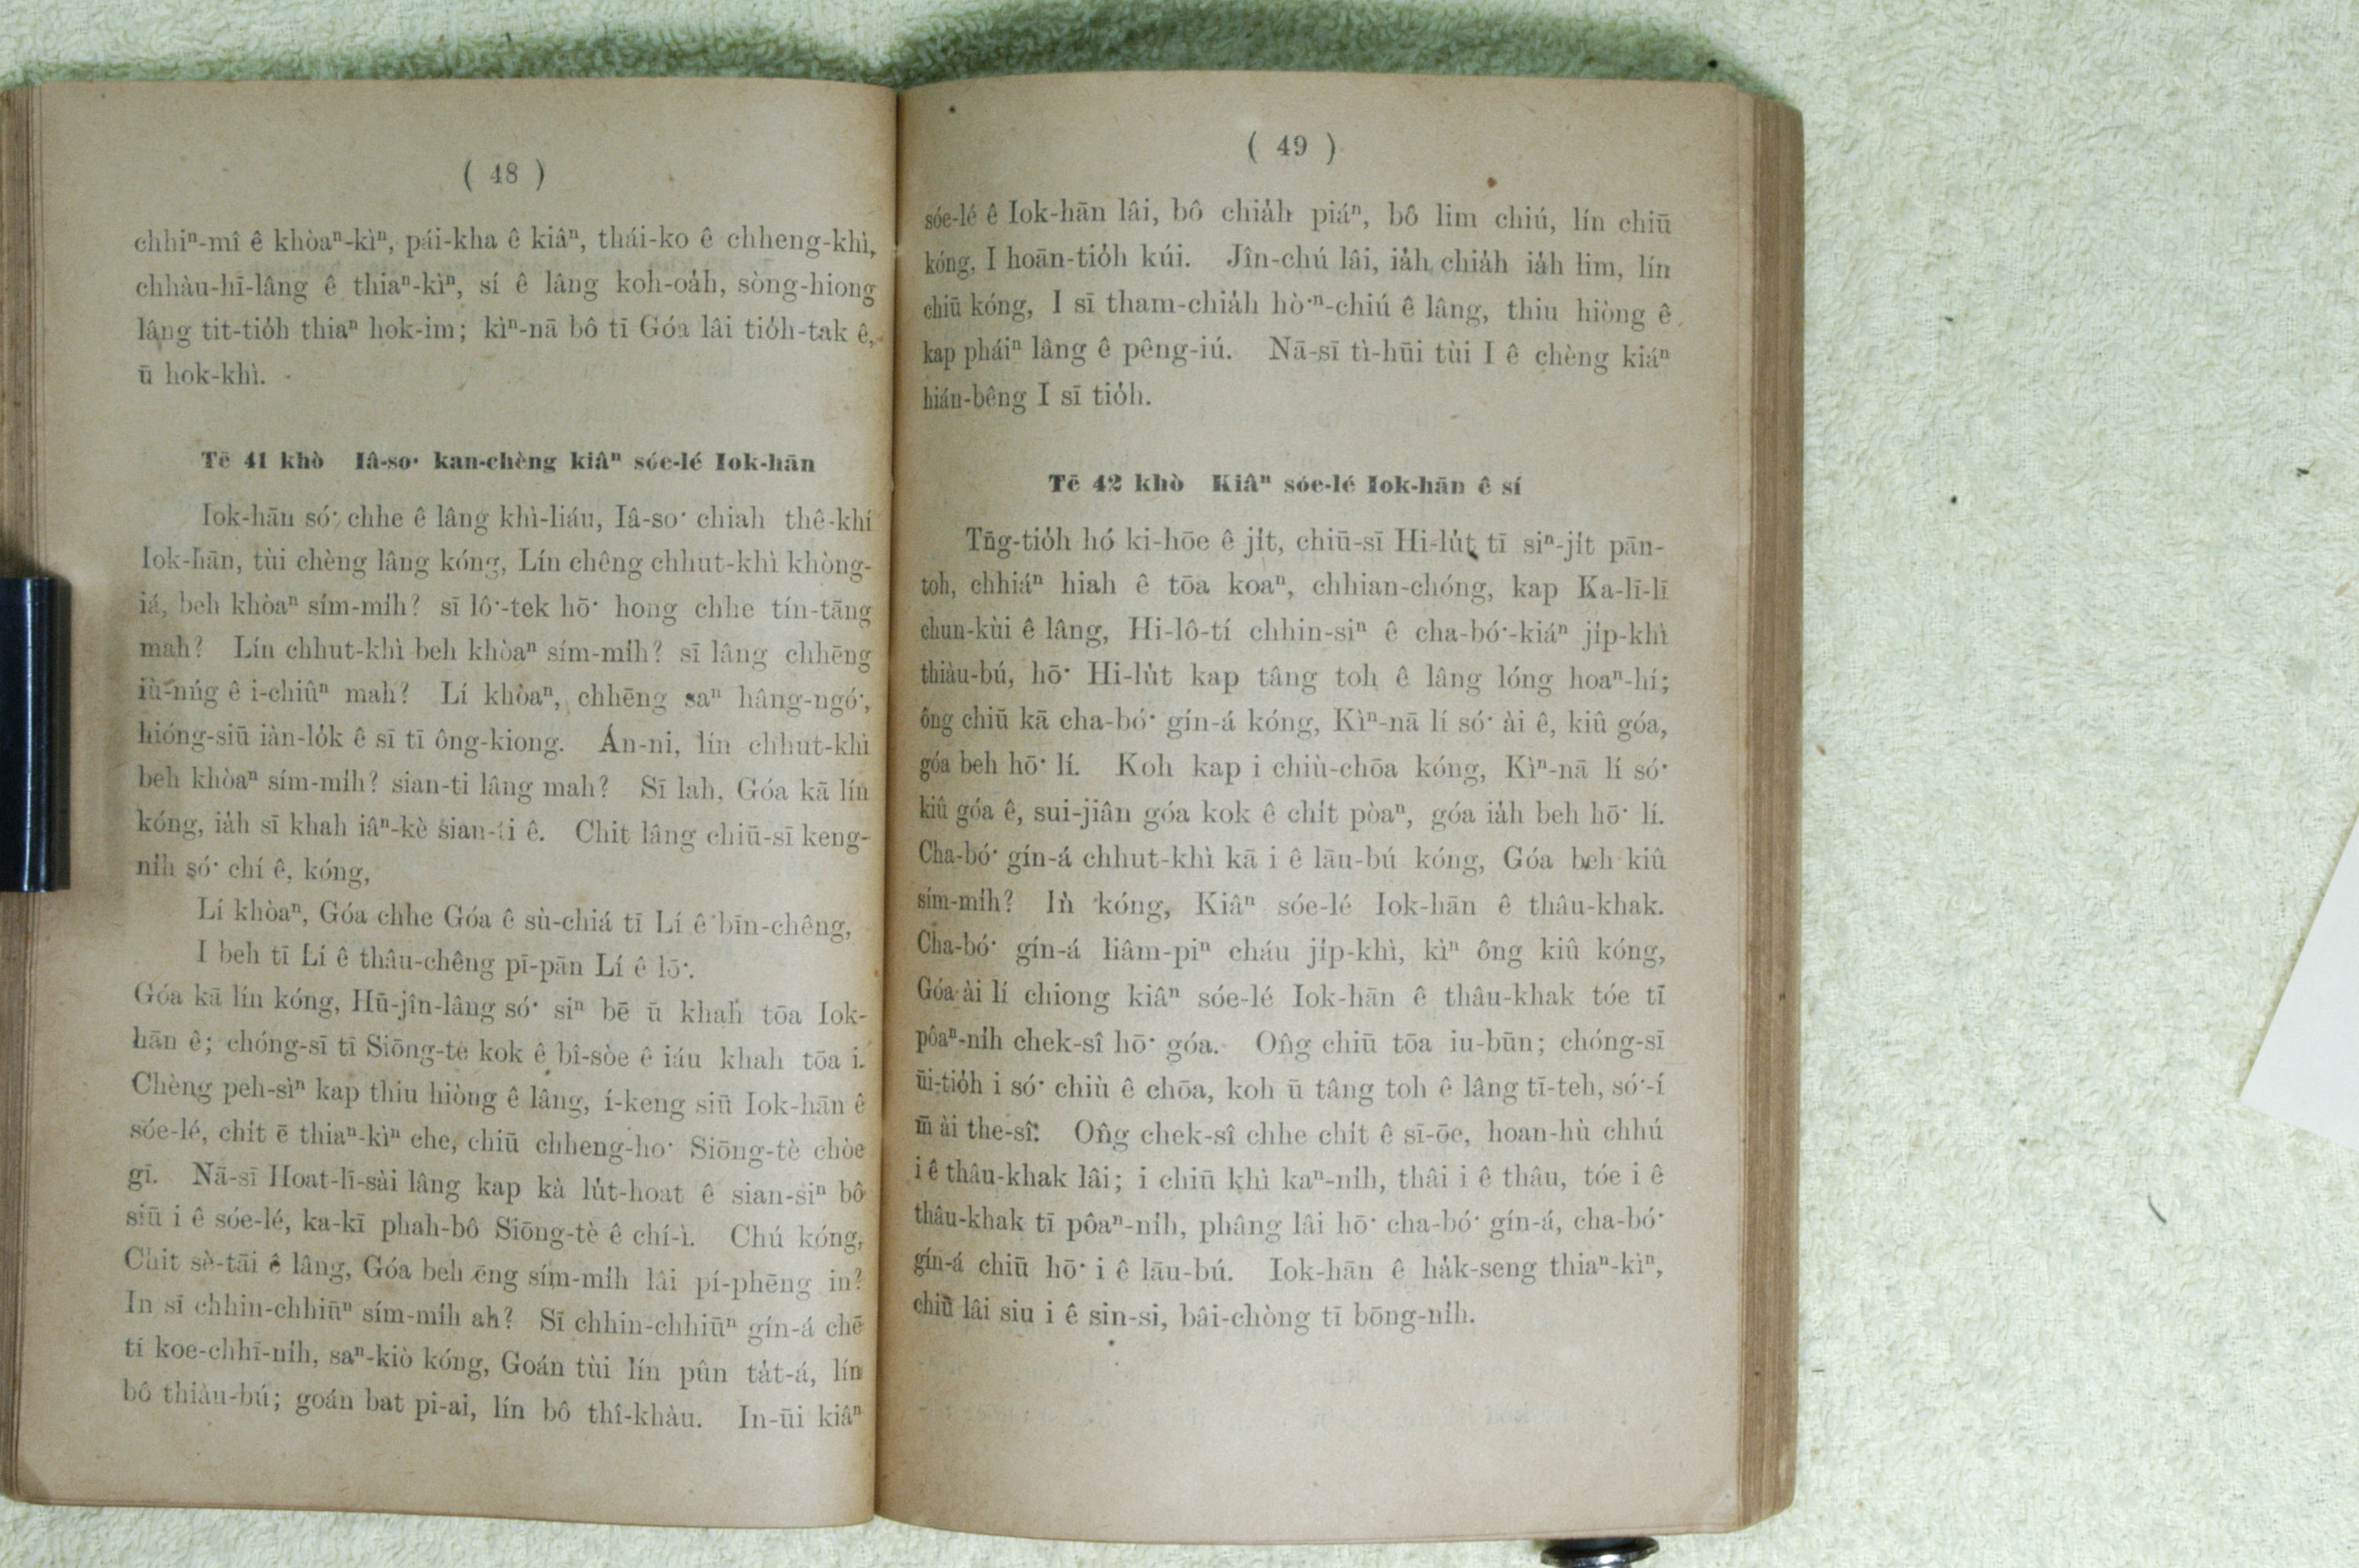 ( 48 )
chhiⁿ-mî ê khòaⁿ-kìⁿ, pái-kha ê kiâⁿ, thái-ko ê chheng-khì,
chhàu-hī-lâng ê thiaⁿ-kìⁿ, sí ê lâng koh-oa̍h, sòng-hiong
lâng tit-tio̍h thiaⁿ hok-im; kìⁿ-nā bô tī Góa lâi tio̍h-tak ê,
ū hok-khì.
Tē 41 khò Iâ-so͘ kan-chèng kiâⁿ sóe-lé Iok-hān
Iok-hān só͘ chhe ê lâng khì-liáu, Iâ-so͘ chiah thê-khí
Iok-hān, tùi chèng lâng kóng, Lín chêng chhut-khì khòng-
iá, beh khòaⁿ sím-mi̍h? sī lô͘-tek hō͘ hong chhe tín-tāng
mah? Lín chhut-khì beh khòaⁿ sím-mi̍h? sī lâng chhēng
iù-nńg ê i-chiûⁿ mah? Lí khòaⁿ, chhēng saⁿ hâng-ngó͘,
hióng-siū iàn-lo̍k ê sī tī ông-kiong. Án-ni, lín chhut-khì
beh khòaⁿ sím-mi̍h? sian-ti lâng mah? Sī lah, Góa kā lín
kóng, ia̍h sī khah iâⁿ-kè sian-ti ê. Chit lâng chiū-sī keng-
ni̍h só͘ chí ê, kóng,
Lí khòaⁿ, Góa chhe Góa ê sù-chiá tī Lí ê bīn-chêng,
I beh tī Lí ê thâu-chêng pī-pān Lí ê lō͘.
Góa kā lín kóng, Hū-jîn-lâng só͘ siⁿ bē ū khah tōa Iok-
hān ê; chóng-sī tī Siōng-tè kok ê bî-sòe ê iáu khah tōa i.
Chèng peh-sìⁿ kap thiu hiòng ê lâng, í-keng siū Iok-hān ê
sóe-lé, chi̍t ē thiaⁿ-kìⁿ che, chiū chheng-ho͘ Siōng-tè chòe
gī. Nā-sī Hoat-lī-sài lâng kap kà lu̍t-hoat ê sian-siⁿ bô
siū i ê sóe-lé, ka-kī phah-bô Siōng-tè ê chí-ì. Chú kóng,
Chit sè-tāi ê lâng, Góa beh ēng sím-mi̍h lâi pí-phēng in?
In sī chhin-chhiūⁿ sím-mi̍h ah? Sī chhin-chhiūⁿ gín-á chē
tī koe-chhī-ni̍h, saⁿ-kiò kóng, Goán tùi lín pûn ta̍t-á, lín
bô thiàu-bú; goán bat pi-ai, lín bô thî-khàu. In-ūi kiâⁿ
( 49 )
sóe-lé ê Iok-hān lâi, bô chia̍h piáⁿ, bô lim chiú, lín chiū
kóng, I hoān-tio̍h kúi. Jîn-chú lâi, ia̍h chia̍h ia̍h lim, lín
chiū kóng, I sī tham-chia̍h hò͘ⁿ-chiú ê lâng, thiu hiòng ê
kap pháiⁿ lâng ê pêng-iú. Nā-sī tì-hūi tùi I ê chèng kiáⁿ
hián-bêng I sī tio̍h.
Tē 42 khò Kiâⁿ sóe-lé Iok-hān ê sí
Tn̄g-tio̍h hó ki-hōe ê ji̍t, chiū-sī Hi-lu̍t tī siⁿ-ji̍t pān-
toh, chhiáⁿ hiah ê tōa koaⁿ, chhian-chóng, kap Ka-lī-lī
chun-kùi ê lâng, Hi-lô-tí chhin-siⁿ ê cha-bó͘-kiáⁿ ji̍p-khì
thiàu-bú, hō͘ Hi-lu̍t kap tâng toh ê lâng lóng hoaⁿ-hí;
ông chiū kā cha-bó͘ gín-á kóng, Kìⁿ-nā lí só͘ ài ê, kiû góa,
góa beh hō͘ lí. Koh kap i chiù-chōa kóng, Kìⁿ-nā lí só͘
kiû góa ê, sui-jiân góa kok ê chi̍t pòaⁿ, góa ia̍h beh hō͘ lí.
Cha-bó͘ gín-á chhut-khì kā i ê lāu-bú kóng, Góa beh kiû
sím-mi̍h? In kóng, Kiâⁿ sóe-lé Iok-hān ê thâu-khak.
Cha-bó͘ gín-á liâm-piⁿ cháu ji̍p-khì, kìⁿ ông kiû kóng,
Góa ài lí chiong kiâⁿ sóe-lé Iok-hān ê thâu-khak tóe tī
pôaⁿ-ni̍h chek-sî hō͘ góa. Ông chiū tōa iu-būn; chóng-sī
ūi-tio̍h i só͘ chiù ê chōa, koh ū tâng toh ê lâng tī-teh, só͘-í
m̄ ài the-sî. Ông chek-sî chhe chi̍t ê sī-ōe, hoan-hù chhú
i ê thâu-khak lâi; i chiū khì kaⁿ-ni̍h, thâi i ê thâu, tóe i ê
thâu-khak tī pôaⁿ-ni̍h, phâng lâi hō͘ cha-bó͘ gín-á, cha-bó͘
gín-á chiū hō͘ i ê lāu-bú. Iok-hān ê ha̍k-seng thiaⁿ-kìⁿ,
chiū lâi siu i ê sin-si, bâi-chòng tī bōng-ni̍h.